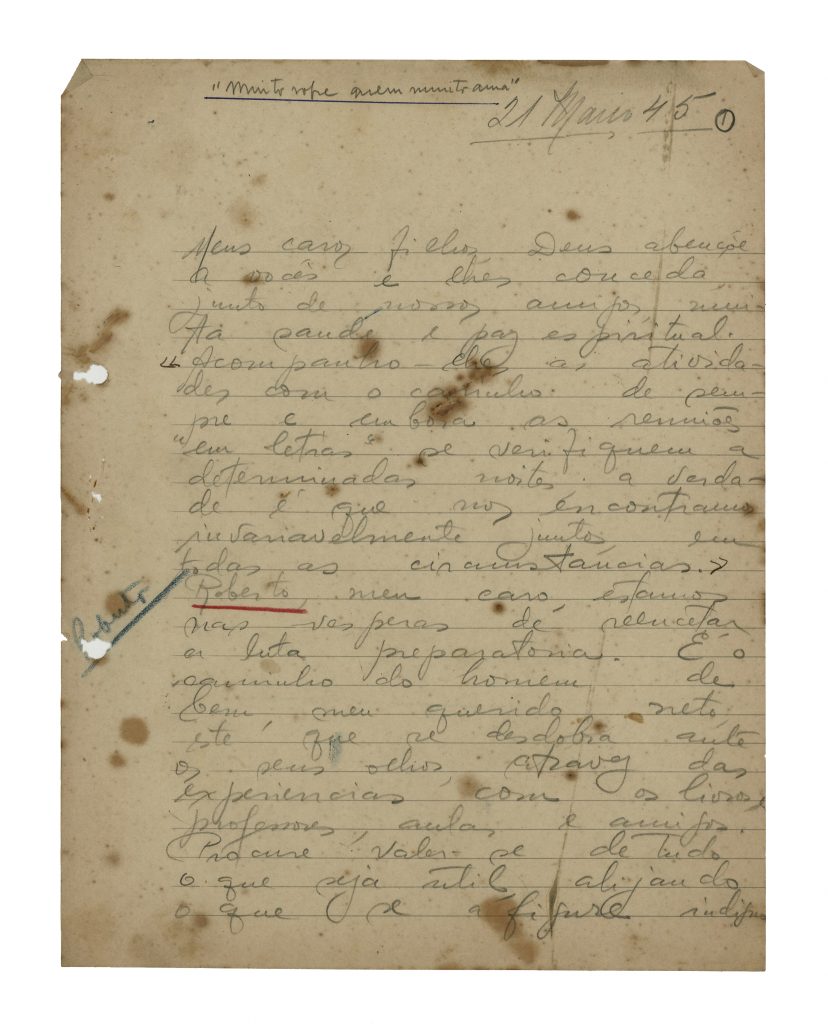 "Muito sofre quem muito ama"
21 Março 45 1
Meus caros filhos, Deus abençôe
a vocês e lhes conceda
junto de nossos amigos mui-
ta saude e paz espiritual.
"Acompanho-lhes as ativida-
des com o carinho de sem-
pre e embora as reuniões
"em letras" se verifiquem a
determinadas noites a verda-
de é que nos encontramos
invariavelmente juntos em
todas as circunstancias.»
Roberto
Roberto, meu caro, estamos
nas vesperas de reencetar
a luta preparatoria. É o
caminho do homem de
bem, meu querido neto,
este que se desdobra ante
os seus olhos, atravez das
experiencias com os livros,
professores, aulas e amigos.
Procure valer-se de tudo
o que seja util, alijando
o que se afigure indigno